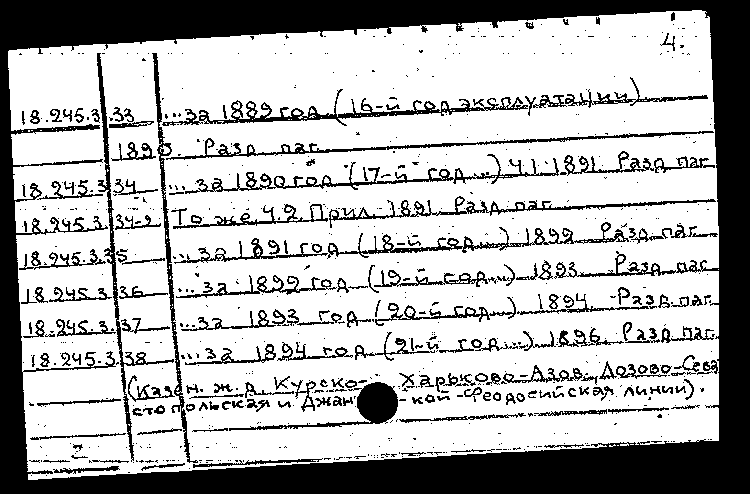 4.
18.245.3.33 ...за 1889 год (16-й год эксплуатации).
1890. Разд. паг.
18.245.3.34 ...за 1890 год (17-й год...) Ч.1. 1891. Разд. паг.
18.245.3.34-2 То же, Ч.2. Прил. 1891. Разд. паг.
18.245.3.35 ...за 1891 год (18-й год...) 1892. Разд. паг.
18.245.3.36 ...за 1892 год (19-й год...) 1893. Разд. паг.
18.245.3.37 ...за 1893 год (20-й год...) 1894. Разд. паг.
18.245.3.38 ...за 1894 год (21-й год...) 1896. Разд. паг.
(Казен. ж.д. Курско-Харьково-Азов., Лозово-Сева
стопольская и Джан -кой-Феодосийская линии).